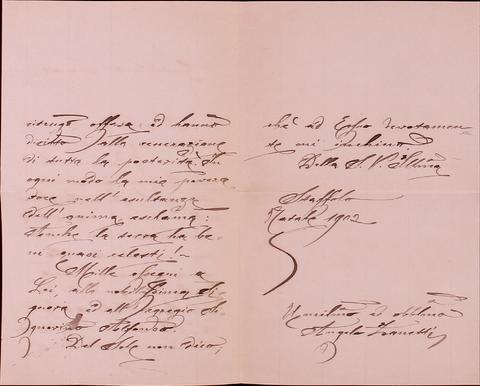 ritengo offesa ed hanno
diritto alla venerazione
di tutta la posterità. In
ogni modo la mia povera
voce nell'esultanza
dell'anima esclama:
Anche la terra ha be-
ni quasi celesti! -
Mille ossequi a
Lei, alla nobilissima Si-
gnora ed all'egregio Si-
gnorino
Del Sole non dico,
chè ad Esso devotamen-
te mi inchino.
Della S. V. Ill.ma
Staffolo
Natale 1902
Umilmo ed obblmo
Angelo Zanetti